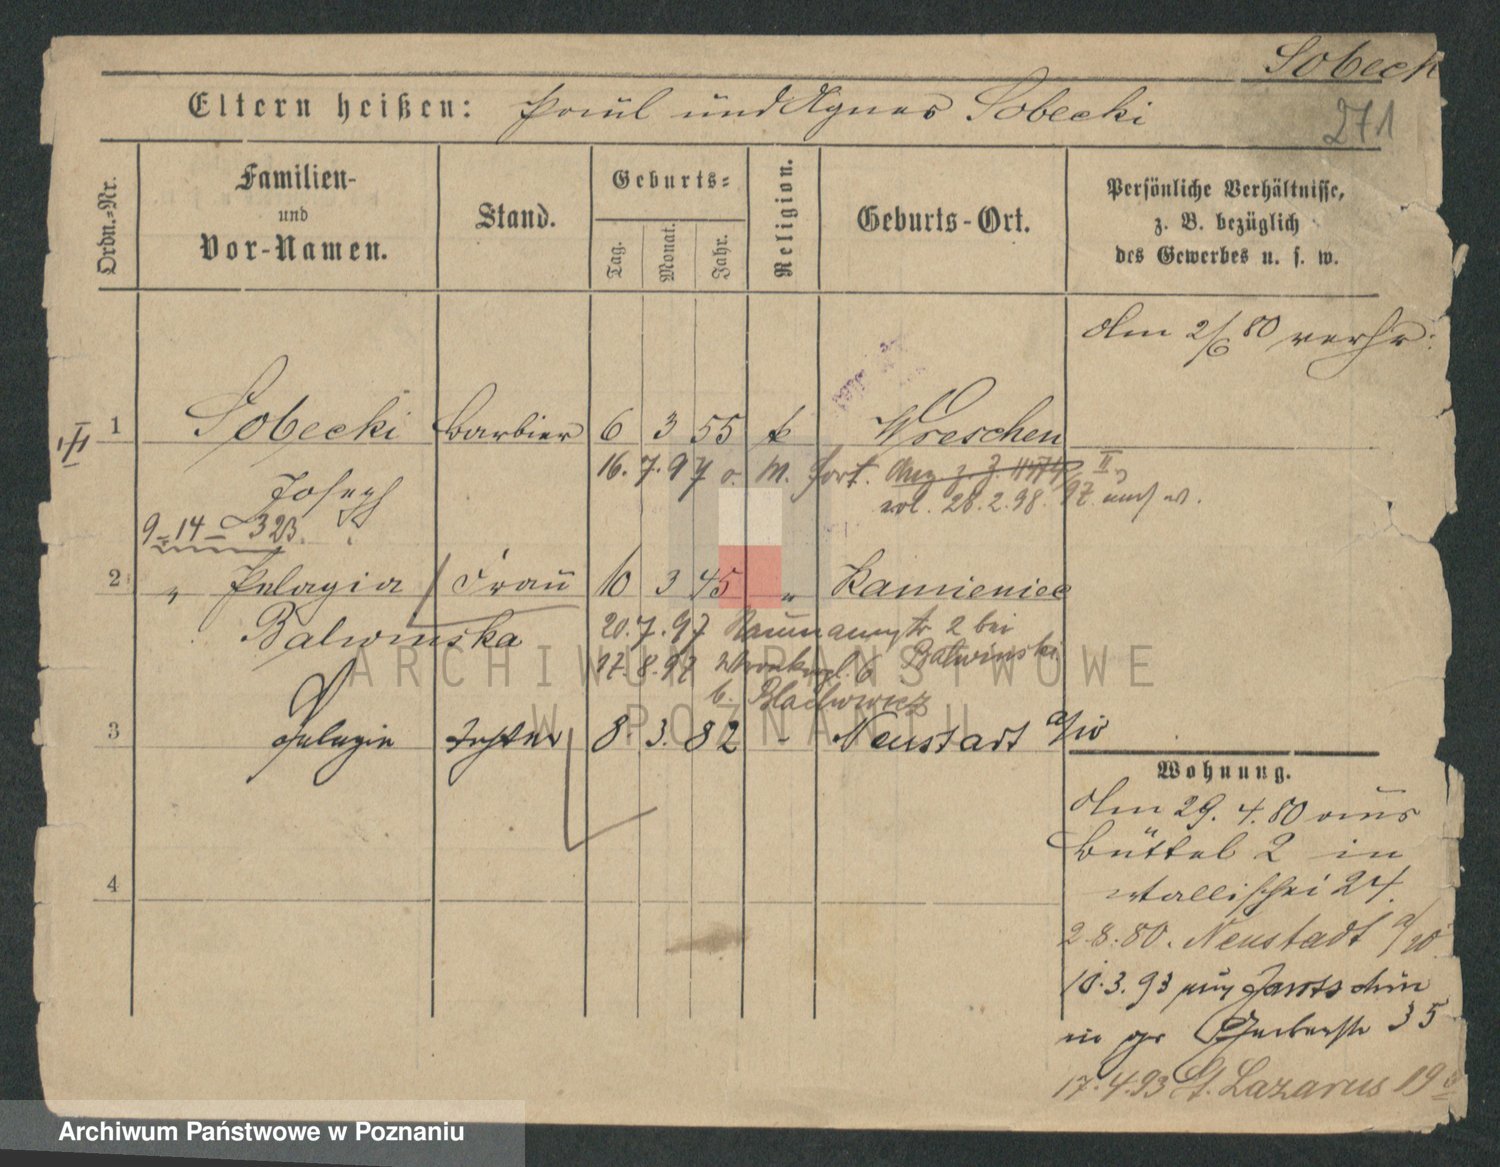 Sobeck
Eltern heißen: Paul und Agnes Sobecki
271
Ordn.-Nr.
Familien-
und
Vor-Namen.
Stand.
Geburts-
Tag.
Monat.
Jahr.
Religion.
Geburts-Ort.
Persönliche Verhältnisse,
z. B. bezüglich
des Gewerbes u. s. w.
Am 2/6 80 verh:
1 Sobecki Barbier 6 3 55 k Wreschen
III
16. 7. 97 m. fort.
Joseph
28. 2. 98.
9 = 14 = 323.
2 " Pelagia Frau 10 3 45 " Kamieniec
Balwinska
20. 7. 97 Naumannstr 2 bei
Balwinski
17. 8. 97 6
b. Blachowicz
3 Pelagia Tochter 8. 3. 82 - Neustadt a/W
Wohnung.
Am 29. 4. 80 aus
Büttel 2 in
Wallischei 24.
4
2. 8. 80. Neustadt a/W.
10. 3. 93 Jarotschin
Gerberstr 35
17. 4. 93 St. Lazarus 19
ARCHIWUM PAŃSTWOWE
W POZNANIU
Archiwum Państwowe w Poznaniu